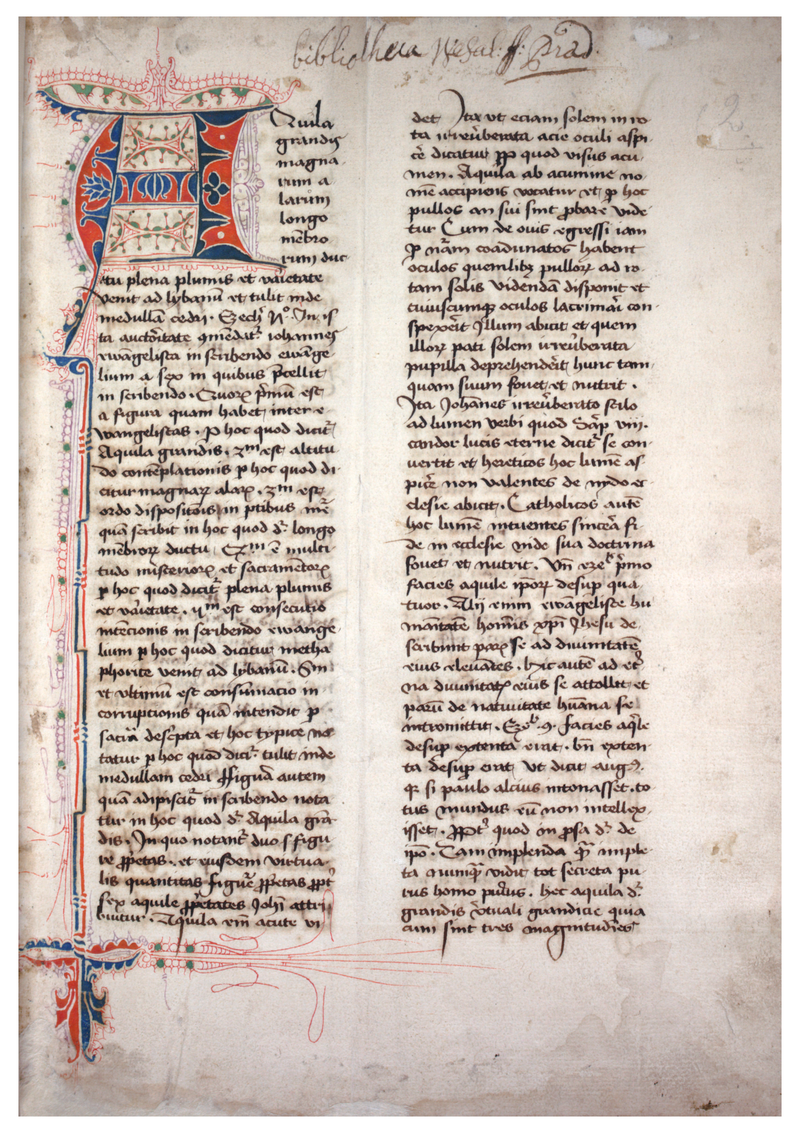 bibliotheca Wesal: ff: Præd.
2
Aquila
grandis
magna
rum a
larum
longo
mēbro
rum duc
tu plena plumis et vaīetate
venit ad lybanū et tulit inde
medullā cedri. Ezech
ta auctōritate iohannes
ewāgelista in scribendo ewāge
lium a sex in quibus p̄cellit
in scribendo. Quorꝝ p̄mū est
a figura quam habet inter e
wangelistas. ꝑ hoc quod dicit᷑
Aquila grandis. 2ᵐ est altitu
do contēplationis ꝑ hoc quod di
citur magnarꝝ alarꝝ. 3ᵐ est
ordo dispositōis in ꝑtibus
quā scribit in hoc quod dr̄ longo
mēbrorꝝ ductu. ē multi
tudo misteriorꝝ et sacramētorꝝ
ꝑ hoc quod dicit᷑ plena plumis
et vaīetate. est consecutio
intēcionis in scribendo ewange
lium ꝑ hoc quod dicitur metha
phorice venit ad lybanū.
et vltimū est consumacio in
corruptionis quā intendit ꝑ
sac̄ta desc̄pta et hoc typice no
tatur ꝑ hoc quod dicit᷑ tulit inde
medullam cedri ffigurā autem
quā adipiscit᷑ in scribendo nota
tur in hoc quod dr̄ Aquila grā
dis. In quo notant᷑ duo s figu
re ꝓp̄etas. et eiusdem virtua
lis quantitas figure ꝓp̄etas ꝓpt᷑
sex aquile ꝓp̄etates Johī attri
buūtur. Aquila eīm acute vi
det Ita vt eciam solem in ro
ta irreūberata acie oculi aspi
cē dicatur ꝓp quod visus acu
men. Aquila ab acumine no
mē accipiens vocatur et ꝑ hoc
pullos an sui sint ꝓbare vide
tur Cum de ouis egressi iam
ꝑ nām coadunatos habent
oculos quemlibꝫ pullorꝝ ad ro
tam solis videndā disponit et
cuiuscumqꝫ oculos lacrimāi con
spexerit Illum abicit et quem
illorꝝ pati solem irreūberata
pupilla deprehenderit hunc tam
quam suum fouet et nutrit.
Ita Johānes irreūberato
ad lumen verbi quod Sap̄ viii.
candor lucis eterne dicit᷑ se con
uertit et hereticos hoc lumē as
picē non valentes de nido ec
clesie abicit. Catholicos autē
hoc lumē intuentes sincēa fi
de in ecclesie inde sua doctrina
fouet et nutrit. Vn̄ p̄mo
facies aquile ip̄orꝝ desup qua
tuor. Alij enim ewāgeliste hu
manitatē homīs xp̄i Jhesu de
scribunt parꝝ se ad diuinitatē
eius eleuātes. hic autē ad et̄
na diuinitatꝭ eius se attollit et
parū de natiuitate hūana se
intromittit. facies aq̄le
desup extenta erat. bn̄ exten
ta desup erat Vt dicit augꝰ.
qꝫ si paulo alcius intonasset. to
tus mundus eū non intellex
isset. quod in dr̄ de
ip̄o. Tam implenda
ta numqꝫ vidit tot secreta pu
rus homo purius. hec aquila dr̄
grandis grandicie quia
cum sint tres magnitudīes